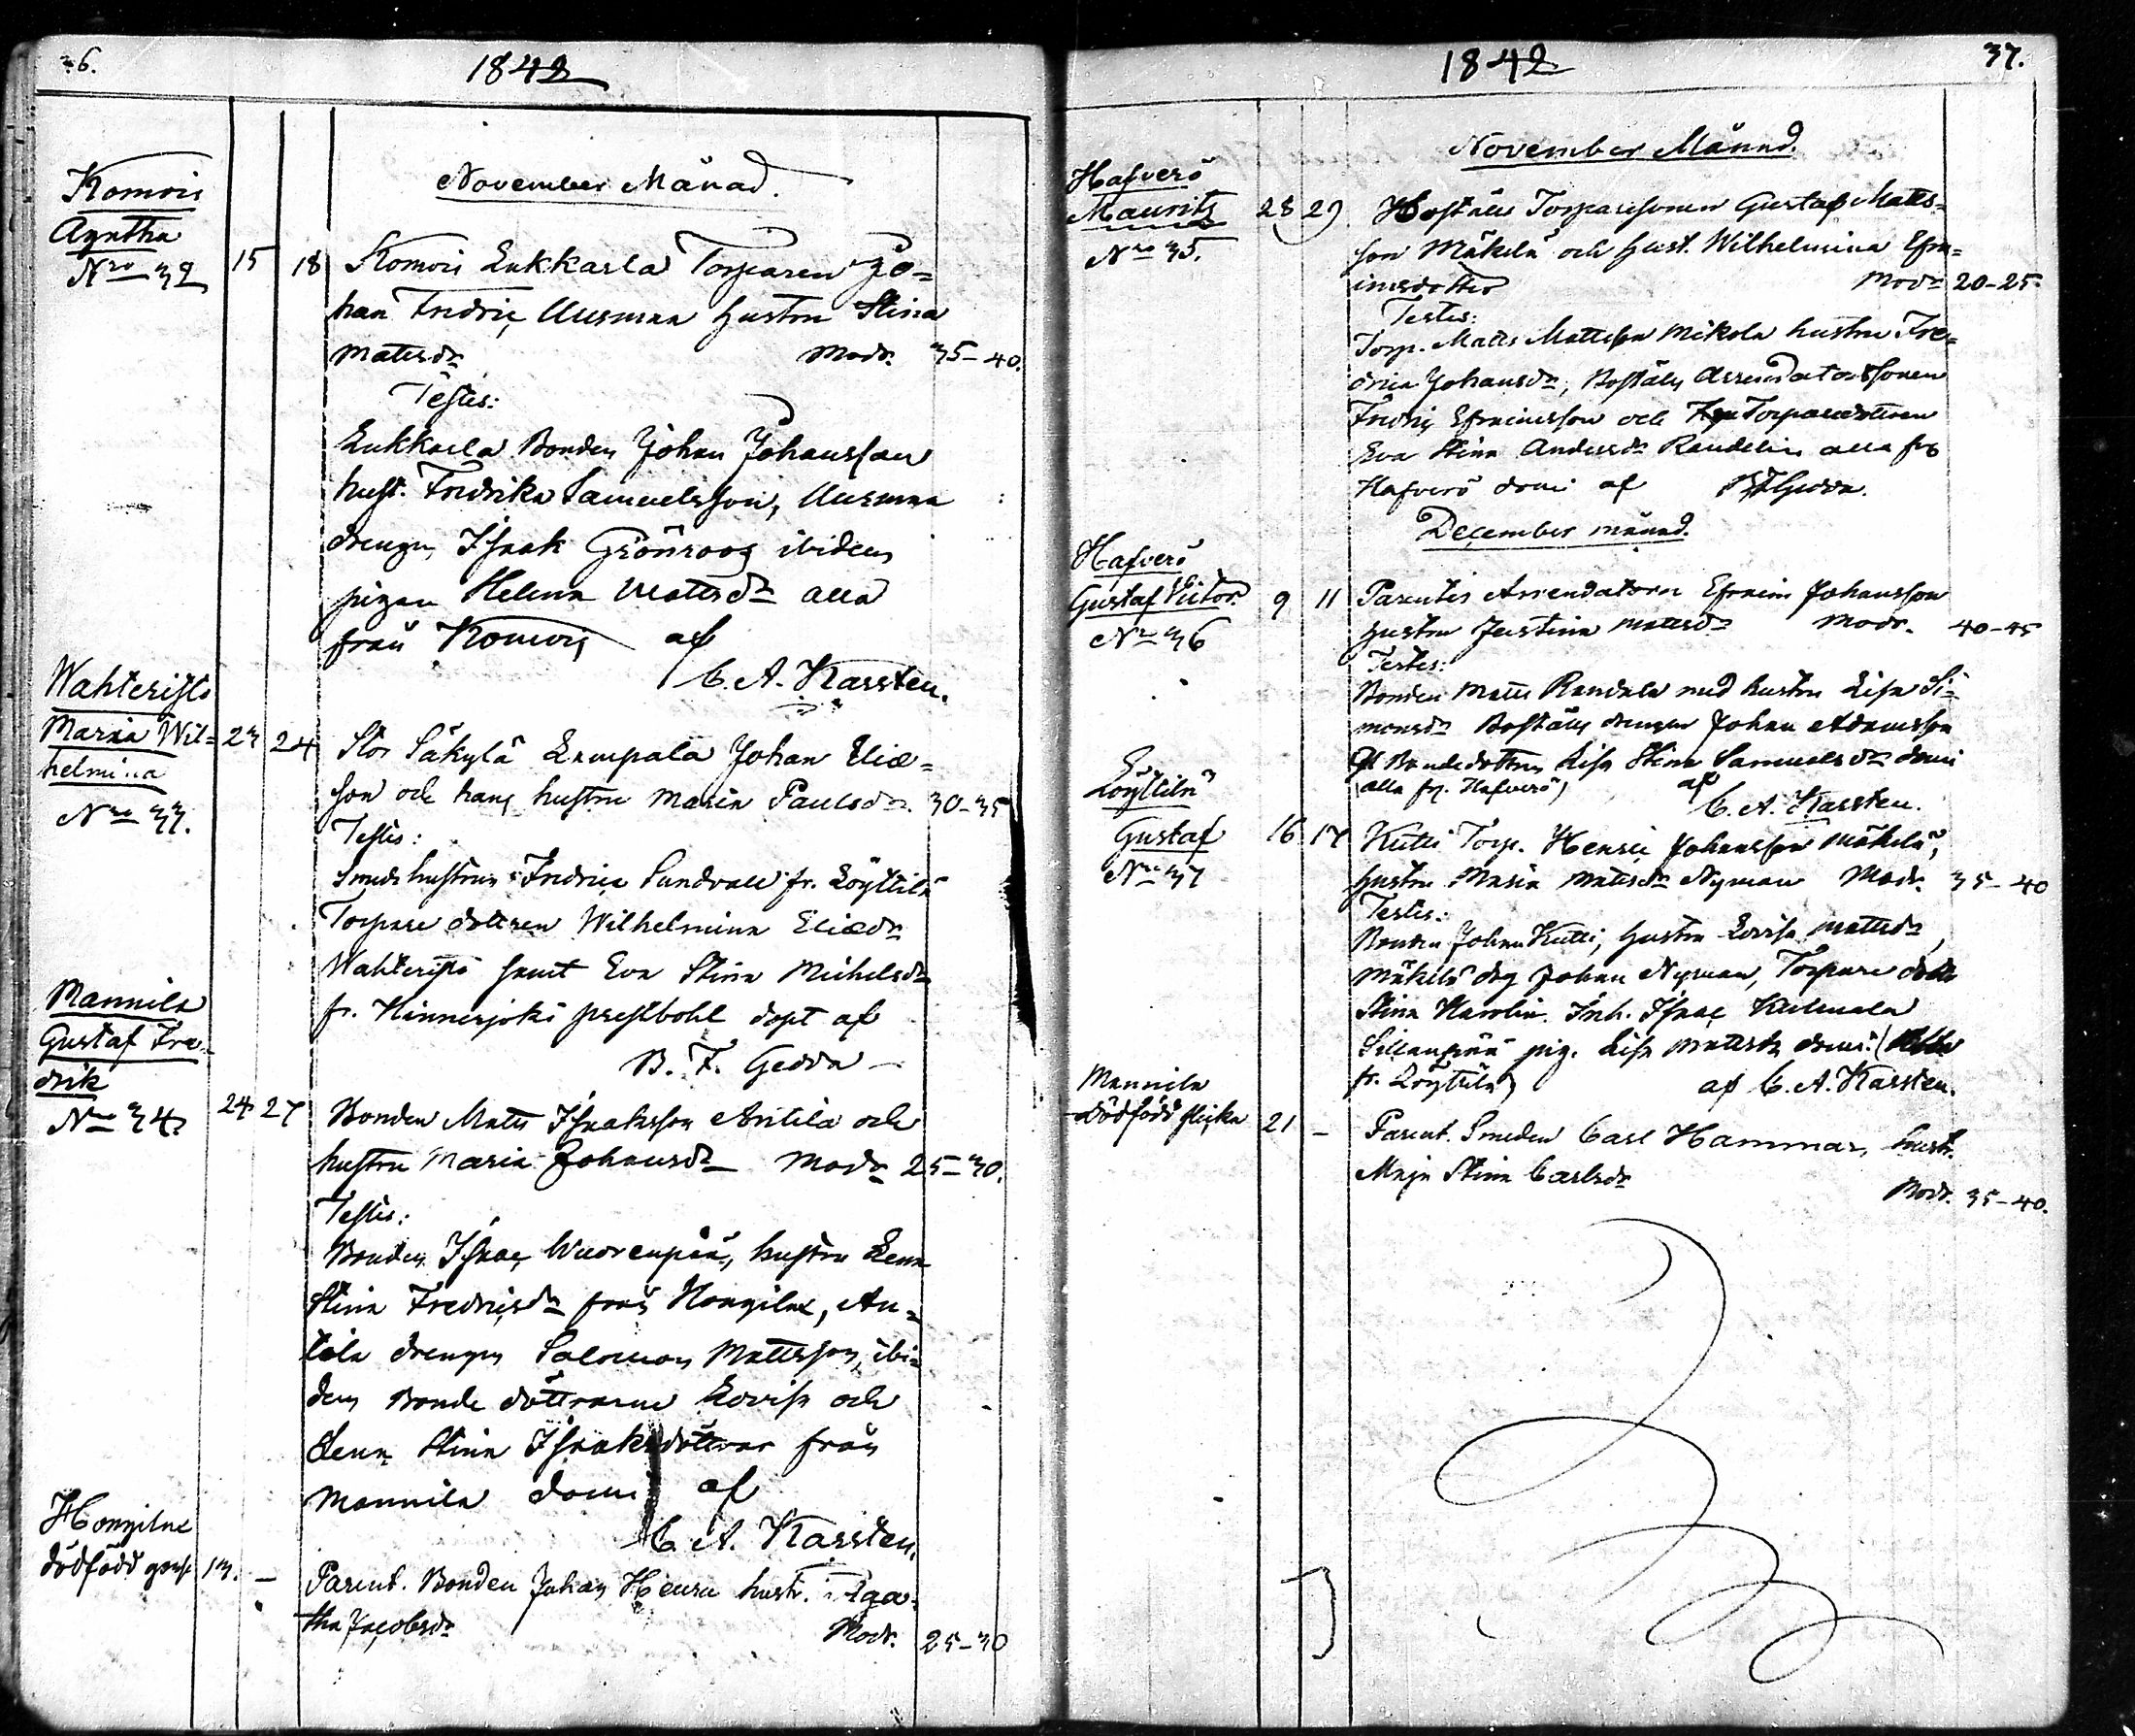 36.
1842
November Månad.
Komois
Agatha
Nro 32
15 18 Komois Lukkarla Torparen Jo=
han Fredric Uusmaa hustru Stina
Matsdr Modr. 35-40.
Testes:
Lukkarla Bonden Johan Johansson
hust. Fredrika Samuelsson, Uusmaa
drengen Isaak Grönroos ibidem
pigan Helena Mattsdr alla
från Komois af
C. A. Karsten.
Wahteristo
Maria Wil=
helmina
Nro 33.
23 24 Stor Säkylä Lempala Johan Elias=
son och hans hustru Maria Paulsdr. 30-35
Testes:
Smeds hustrun Fredrica Sundvall fr. Löyttilä
Torpare dottren Wilhelmina Eliædr
Wahteristo samt Eva Stina Michelsdr
fr. Hinnerjoki prestbohl döpt af
B. F. Gedda
Mannila
Gustaf Fre=
drik
Nro 34.
24 27 Bonden Matts Isaaksson Antila och
hustru Maria Johansdr Modr 25-30.
Testes:
Bonden Isaac Wuorenpää, hustru Lena
Stina Fredricsdr från Hongilax, An=
tila drengen Salomon Mattsson, ibi=
dem Bonde döttrarne Lovisa och
Lena Stina Isaaksdöttrar från
Mannila domi af
C. A. Karsten.
Hongilax
dödfödd gosse 13. - Parent. Bonden Johan Heusu hustr. Aga=
tha Jacobsdr Modr. 25-30
1842
37.
November Månad.
Hafverö
Mauritz
Nro 35.
28 29 Boställs Torparesonen Gustaf Matts=
son Mäkelä och hust. Wilhelmina Efra=
imsdotter Modr 20-25
Testes:
Torp. Matts Mattsson Mikola hustru Fre=
drica Johansdr, Boställs Arrendatorssonen
Fredric Efraimsson och Torparedottren
Eva Stina Andersdr Randelin alla fr
Hafverö domi af BFGedda.
December månad.
Hafverö
Gustaf Victor.
Nro 36
9 11 Parentes Arrendatorn Efraim Johansson
hustru Justina Mattsdr Modr. 40-45
Testes:
Bonden Matts Randala med hustru Lisa Si=
monsdr Boställs drengen Johan Adamsson
Bondedottren Lisa Stina Samuelsdr domi
(alla fr. Hafverö) af
C. A. Karsten.
Löyttilä
Gustaf
Nro 37
16 17 Kutti Torp. Henric Johansson Mäkelä,
hustru Maria Matsdr Nyman Modr. 35-40
Testes:
Bonden Johan Kutti, hustru Lovisa Mattsdr,
Mäkelä drg Johan Nyman, Torpare dottr
Stina Karolin. Inh. Isaac
Sillanpää pig. Lisa Mattsdr domi. (Alla
fr. Löyttilä) af C. A. Karsten.
Mannila
dödfödd flicka 21 - Parent. Smeden Carl Hammar, hustr.
Maja Stina Carlsdr
Modr. 35-40.